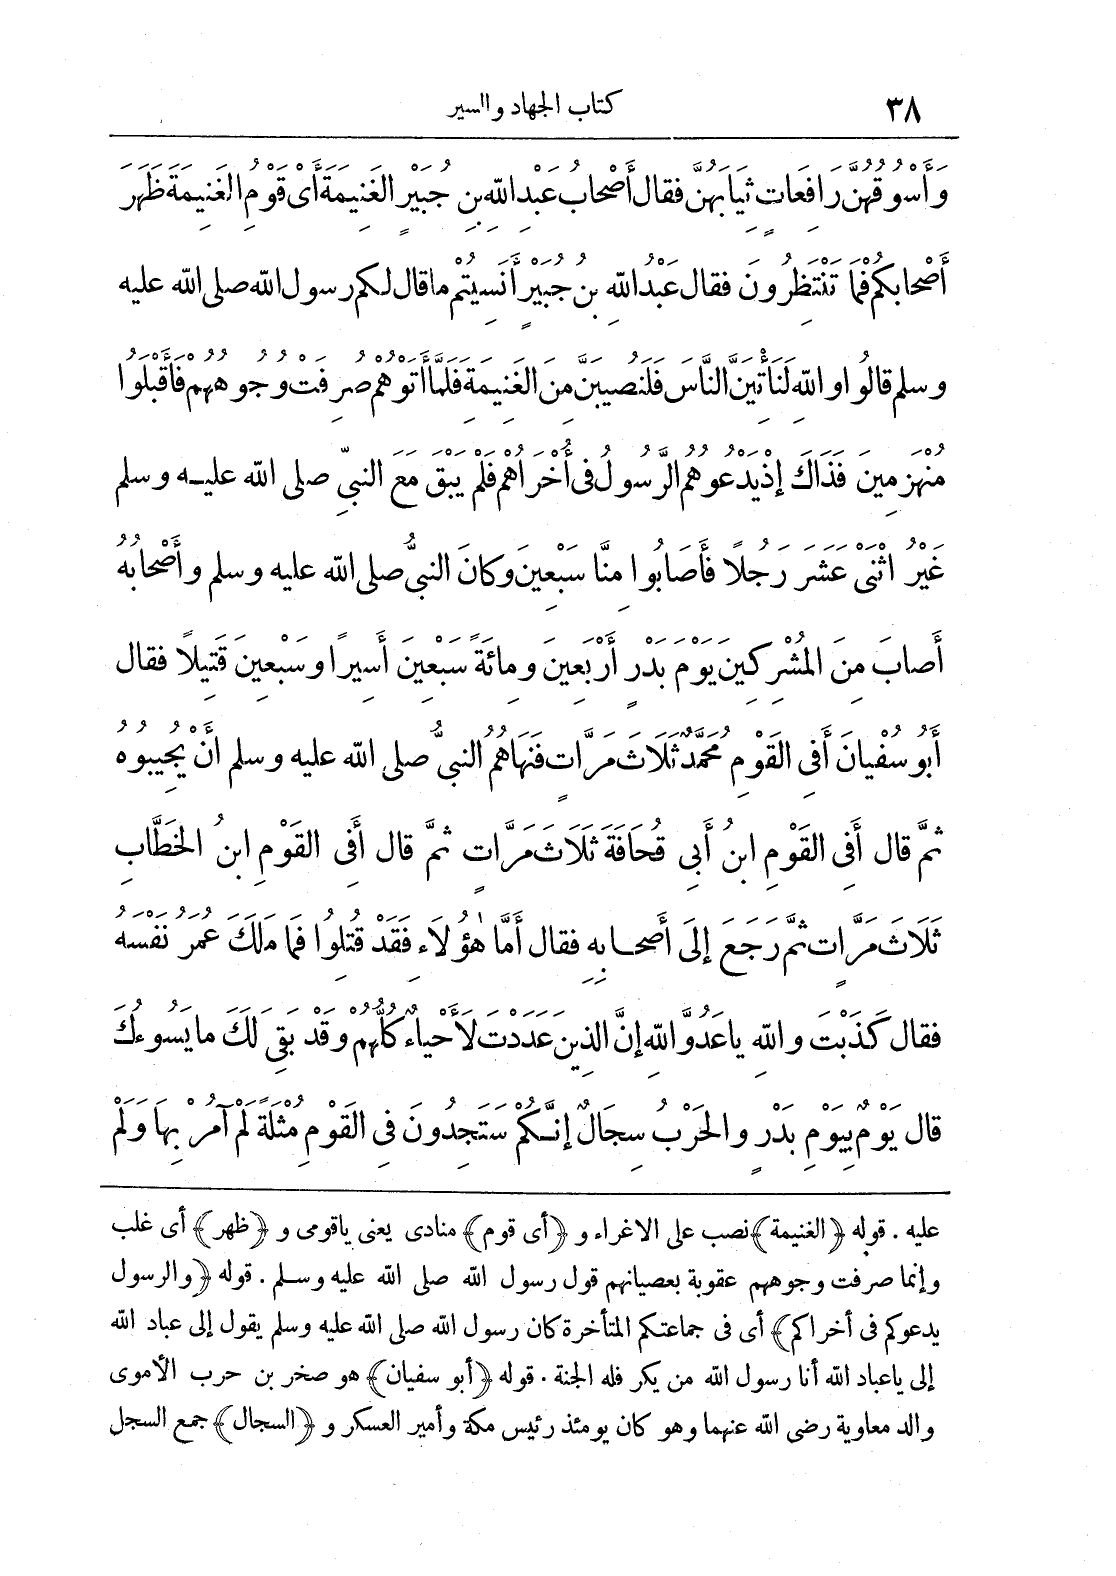 ٣٨ كتاب الجهاد والسير
وَأَسْوُقُهُنَّ رَافِعَاتٍ ثِيَابَهُنَّ فقال أَصْحَابُ عَبْدِ اللهِ بنِ جُبَيْرٍ الغَنِيمَةَ أَىْ قَوْمُ الغَنِيمَةَ ظَهَرَ
أَصْحَابكُمْ فَمَا تَنْتَظِرُونَ فقال عَبْدُ اللهِ بنُ جُبَيْرٍ أَنَسِيتُمْ ما قال لكم رسول الله صلى الله عليه
وسلم قالُوا واللهِ لَنَأْتِيَنَّ النَّاسَ فَلَنُصِيبَنَّ مِنَ الغَنِيمَةِ فَلَمَّا أَتَوْهُمْ صُرِفَتْ وُجُوهُهُمْ فَأَقْبَلُوا
مُنْهَزِمِينَ فَذَاكَ إِذْ يَدْعُوهُمُ الرَّسُولُ فى أُخْرَاهُمْ فَلَمْ يَبْقَ مَعَ النبىِّ صلى الله عليه وسلم
غَيْرُ اثْنَىْ عَشَرَ رَجُلًا فَأَصَابُوا مِنَّا سَبْعِينَ وكانَ النبىُّ صلى الله عليه وسلم وأَصْحَابُهُ
أَصابَ مِنَ المُشْرِكِينَ يَوْمَ بَدْرٍ أَرْبَعِينَ ومائَةً سَبْعِينَ أَسِيرًا وسَبْعِينَ قَتِيلًا فقال
أَبُو سُفْيانَ أَفِى القَوْمِ مُحَمَّدٌ ثَلَاثَ مَرَّاتٍ فَنَهَاهُمُ النبىُّ صلى الله عليه وسلم أَنْ يُجِيبُوهُ
ثمَّ قال أَفِى القَوْمِ ابنُ أَبِى قُحَافَةَ ثَلَاثَ مَرَّاتٍ ثمَّ قال أَفِى القَوْمِ ابنُ الخَطَّابِ
ثَلَاثَ مَرَّاتٍ ثمَّ رَجَعَ إِلَى أَصحابِهِ فقال أَمَّا هٰؤُلَاءِ فَقَدْ قُتِلُوا فَمَا مَلَكَ عُمَرُ نَفْسَهُ
فقال كَذَبْتَ واللهِ يا عَدُوَّ اللهِ إِنَّ الذِينَ عَدَدْتَ لَأَحْياءٌ كُلُّهُمْ وقَدْ بَقِىَ لَكَ ما يَسُوءُكَ
قال يَوْمٌ بِيَوْمِ بَدْرٍ والحَرْبُ سِجَالٌ إِنَّكُمْ سَتَجِدُونَ فِى القَوْمِ مُثْلَةً لَمْ آمُرْ بِهَا وَلَمْ
عليه . قوله ﴿الغنيمة﴾ نصب على الاغراء و ﴿أى قوم﴾ منادى يعنى ياقومى و ﴿ظهر﴾ أى غلب
وإنما صرفت وجوههم عقوبة بعصيانهم قول رسول الله صلى الله عليه وسلم . قوله ﴿والرسول
يدعوكم فى أخراكم﴾ أى فى جماعتكم المتأخرة كان رسول الله صلى الله عليه وسلم يقول إلى عباد الله
إلى ياعباد الله أنا رسول الله من يكر فله الجنة . قوله ﴿أبو سفيان﴾ هو صخر بن حرب الأموى
والد معاوية رضى الله عنهما وهو كان يومئذ رئيس مكة وأمير العسكر و ﴿السجال﴾ جمع السجل